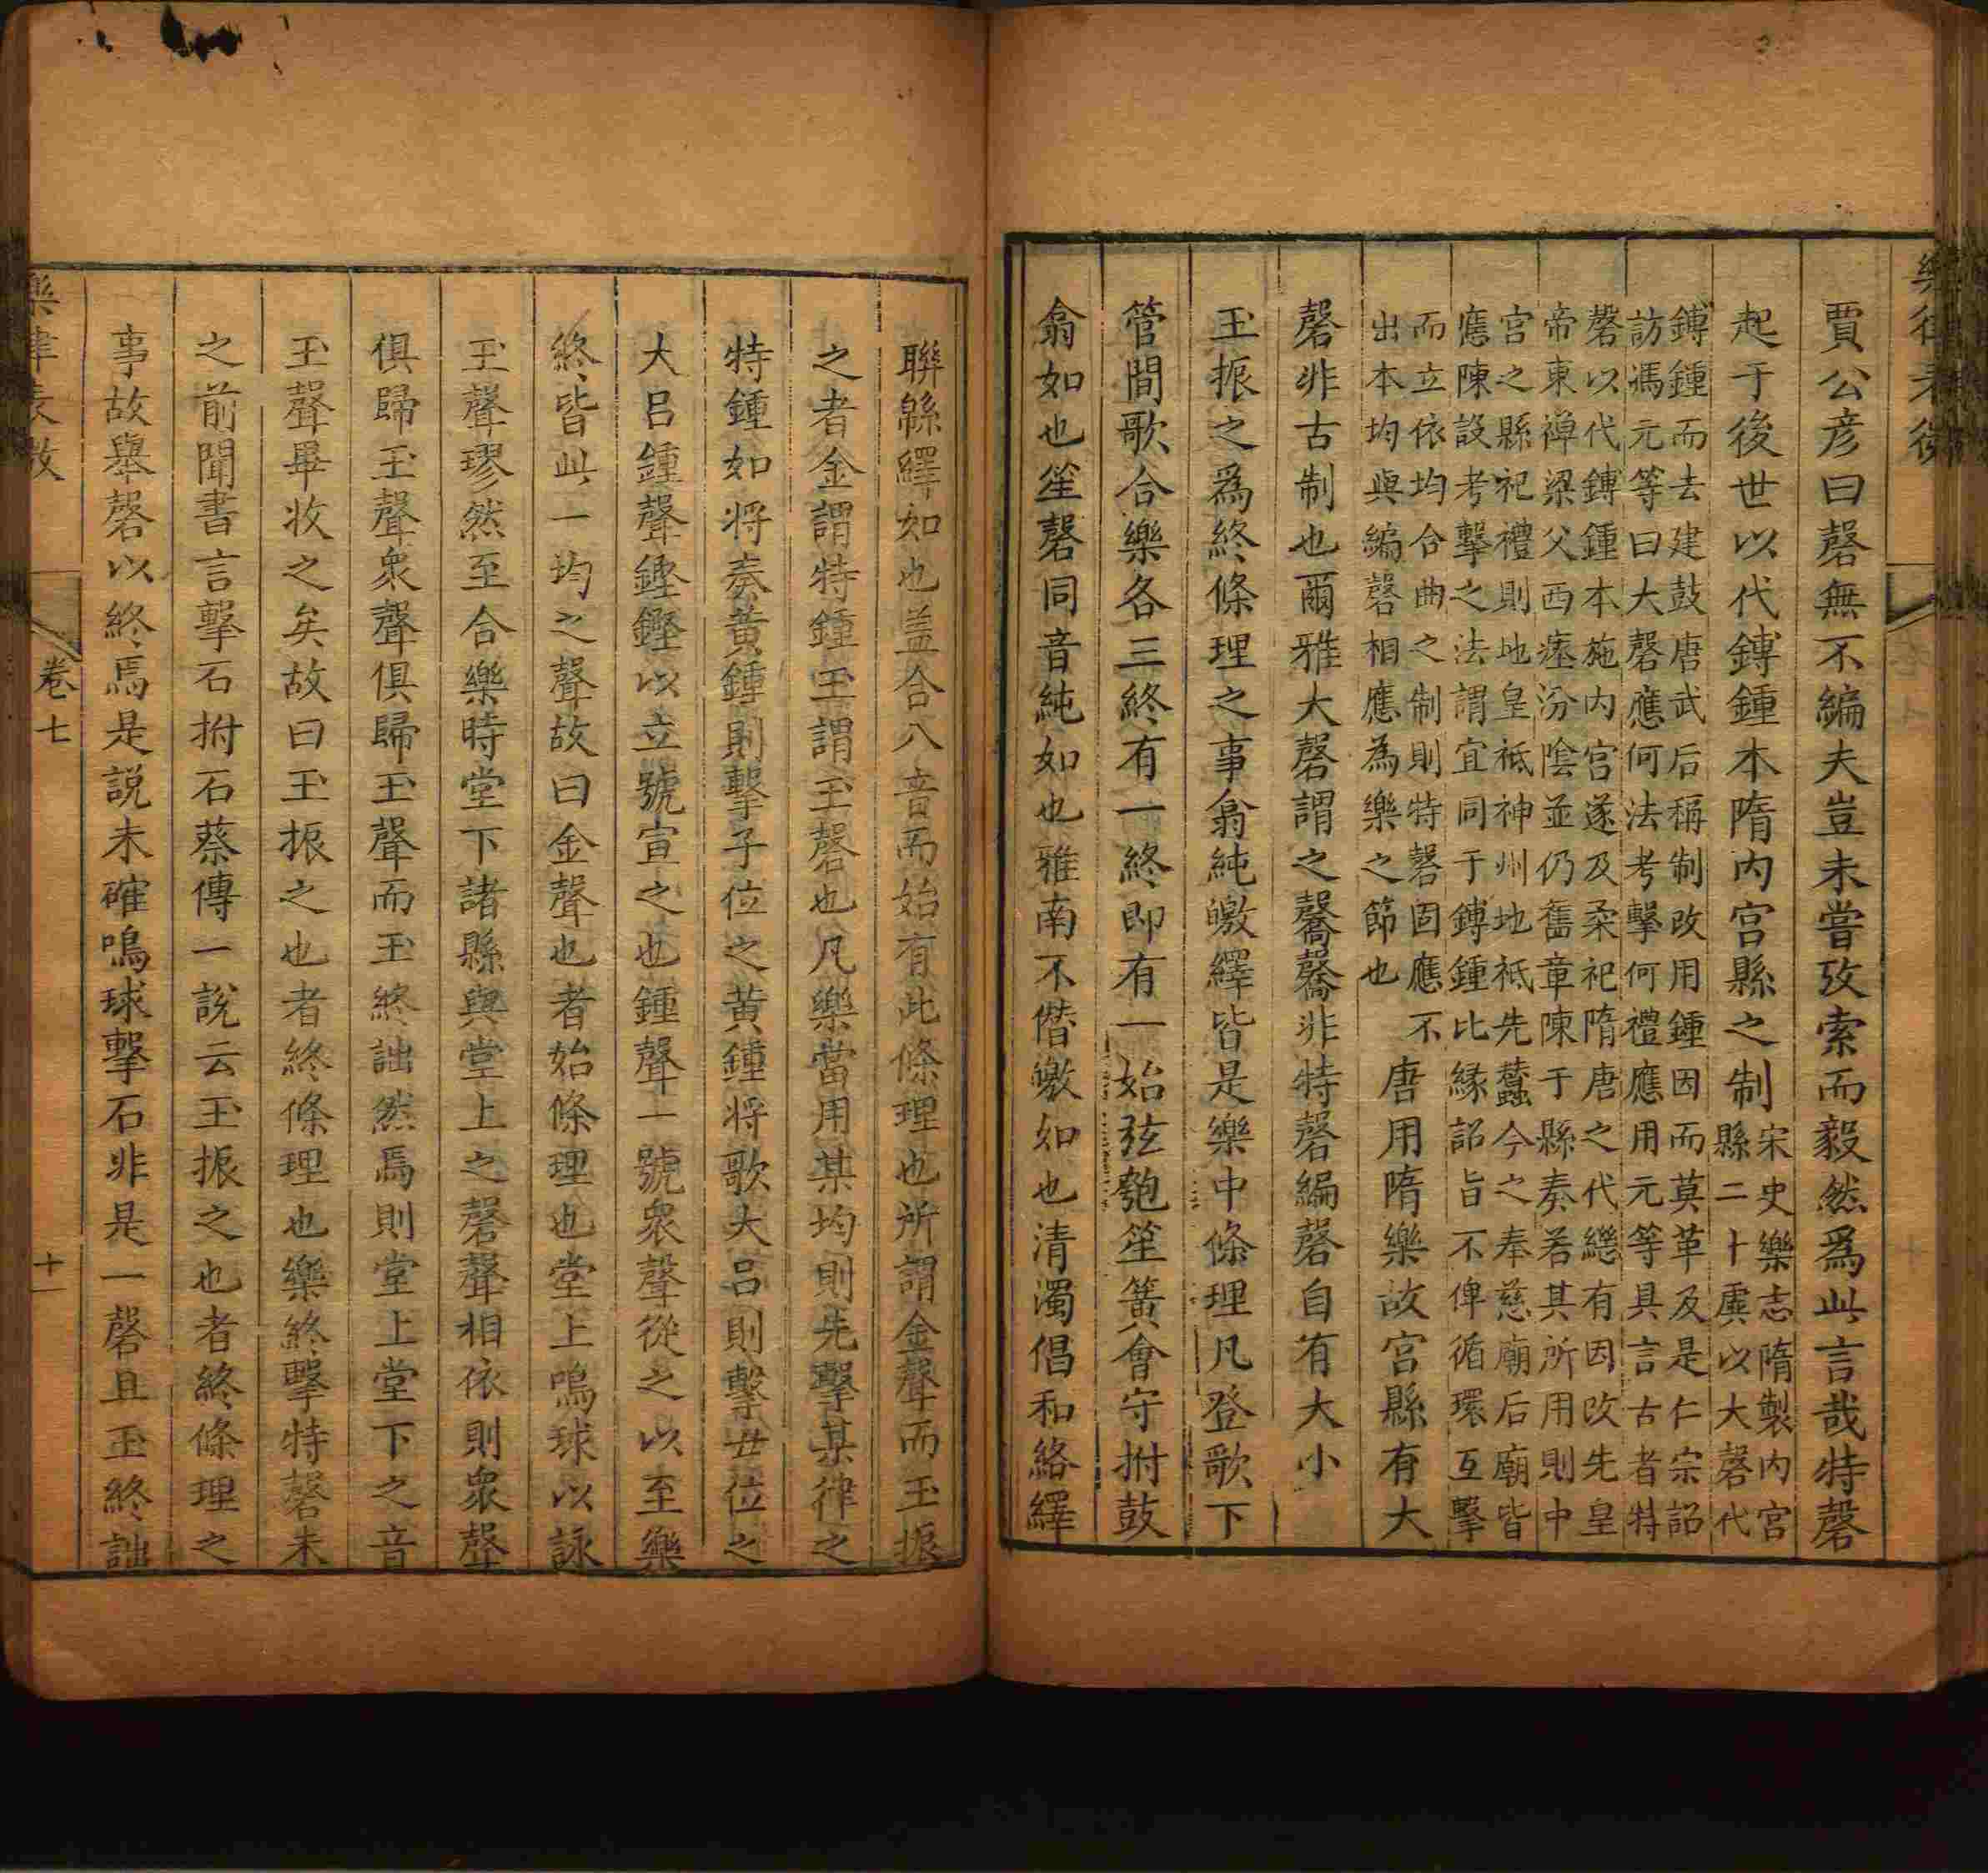 樂律表微
賈公彦曰磬無不編夫豈未嘗攷索而毅然爲此言哉特磬
起于後世以代鎛鍾本隋内宫縣之制
宋史樂志隋製内宫
縣二十虡以大磬代
鎛鍾而去建鼓唐武后稱制改用鍾因而莫革及是仁宗詔
訪馮元等曰大磬應何法考擊何禮應用元等具言古者特
磬以代鎛鍾本施内宫遂及柔祀隋唐之代繼有因改先皇
帝東禅梁父西瘞汾陰並仍舊章陳于縣奏若其所用則中
宫之縣祀禮則地皇祗神州地祗先蠶今之奉慈廟后廟皆
應陳設考擊之法謂宜同于鎛鍾比縁詔旨不俾循環互擊
而立依均合曲之制則特磬固應不
出本均與編磬相應為樂之節也
唐用隋樂故宫縣有大
磬非古制也爾雅大磬謂之毊毊非特磬編磬自有大小
玉振之爲終條理之事翕純皦繹皆是樂中條理凡登歌下
管間歌合樂各三終有一終即有一始弦匏笙簧會守拊鼓
翕如也笙磬同音純如也雅南不僭皦如也清濁倡和絡繹
聯緜繹如也盖合八音而始有此條理也所謂金聲而玉振
之者金謂特鍾玉謂玉磬也凡樂當用某均則先擊某律之
特鍾如将奏黄鍾則擊子位之黄鍾将歌大吕則擊丑位之
大吕鍾聲鏗鏗以立號宣之也鍾聲一號衆聲從之以至樂
終皆此一均之聲故曰金聲也者始條理也堂上鳴球以詠
玉聲璆然至合樂時堂下諸縣與堂上之磬聲相依則衆聲
俱歸玉聲衆聲俱歸玉聲而玉終詘然焉則堂上堂下之音
玉聲畢收之矣故曰玉振之也者終條理也樂終擊特磬未
之前聞書言擊石拊石蔡傳一說云玉振之也者終條理之
事故舉磬以終焉是説未確鳴球擊石非是一磬且玉終詘
樂律表微
卷七
十一